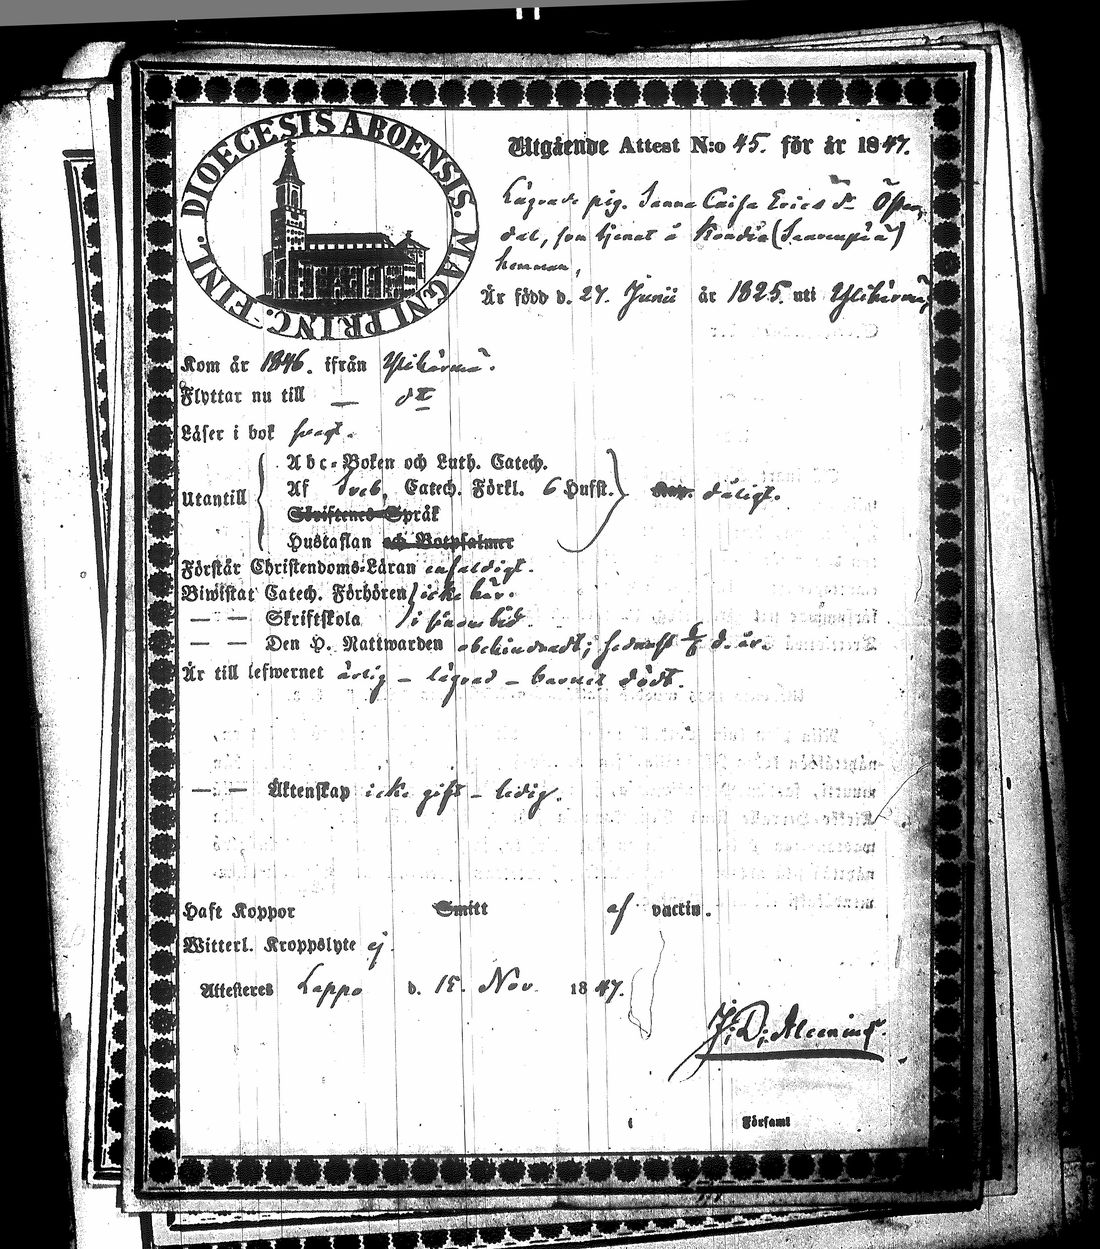 DIOECESIS ABOENSIS. MAGNI PRINC. FINL.
Utgående Attest N:o 45. för år 1847.
Lägrade pig. Sanna Caisa Ericsdr
som tjenat å
hemman,
Är född d. 27. Junii år 1825. uti Ylihärmä
Kom år 1846. ifrån Ylihärmä.
Flyttar nu till — dto
Läser i bok svagt.
Utantill
Abc-Boken och Luth. Catech.
Af Sveb. Catech. Förkl. 6 Hufst. dåligt.
Skriftenes Språk
Hustaflan och Botpsalmer
Förstår Christendoms-Läran enfaldigt.
Biwistat Catech. Förhören icke här.
— — Skriftskola i sinom tid.
— — Den H. Nattwarden obehindradt; sednast d. år.
Är till lefwernet ärlig – lägrad – barnet dödt.
— — Äktenskap icke gift – ledig.
Haft Koppor Smitt af vaccin.
Witterl. Kroppslyte ej.
Attesteres Lappo d. 15. Nov. 1847.
J. D. Alcenius.
i Församl